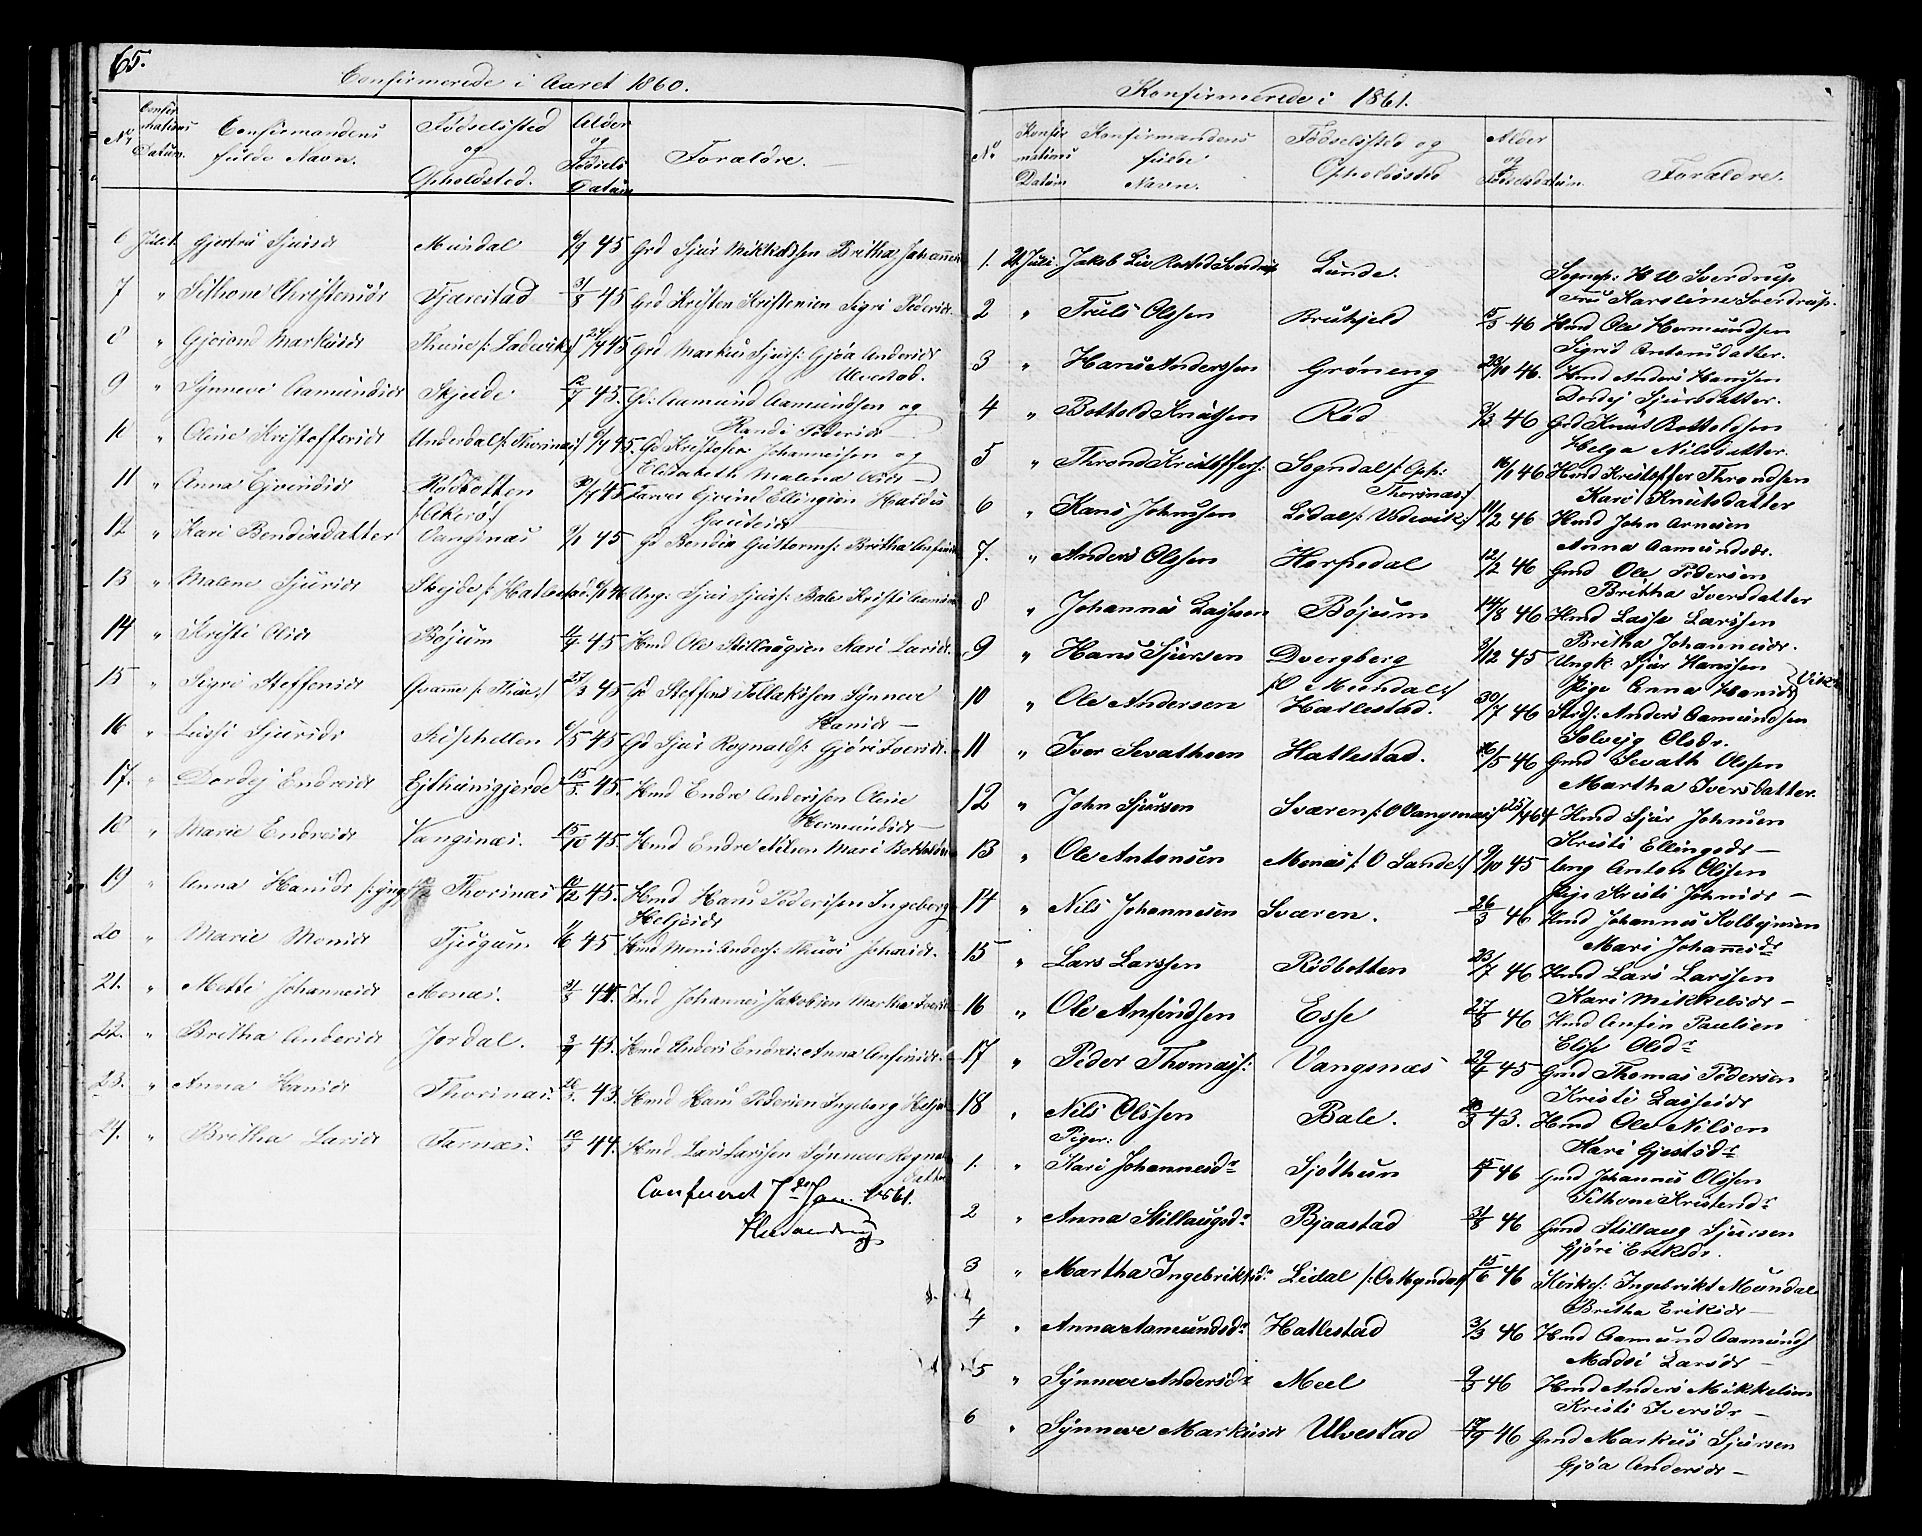 65.
Confirmerede i Aaret 1860.
No Confirmations Datum. Confirmandens fulde Navn. Fødselssted og Opholdsted. Alder og Fødsels Datum Forældre.
6 Gjertru Sjursdr Mundal 6/9 45 Grd Sjur Mikkelsen Britha
7 " Sithone Christensdr Tjærestad 31/8 45 Grd Kristen Kristensen Sigri Pedersdr
8 " Gjøri Markusdr 45 Grd Markus Sjurs: Gjøa Andersdr
Ulvestad.
9 " Synneve Aamundsdr Skjeide 12/7 45. Gd: Aamund Aamundsen og
Randi Pedersdr
10 " Oline Kristoffersdr Underdal /: Thorsnæs :/ 45. Gd Kristofer Johannesen og
Elisabeth Malena Olsdr
11 " Anna Ejvindsdr Rødbotten 45 Ejvind Ellingsen
12 " Kari Bendixdatter Vangsnæs 9/1 45 Gd Bendix Guttorms: Britha Anfinsdr
13 " Malene Sjursdr Skejde /: Hatlestad. Ung: Sjur Sjurs: Bale Kristi Aamunds
14 " Kristi Olsdr Bøjum 45 Hmd Ole Stillaugsen Mari Larsdr
15 " Sigri Steffensdr 27/3 45 Gd Steffen Tollaksen Synneve
Hansdr
16 " Lussi Sjursdr 6/5 45 Gd Sjur Rognalds: Gjøri Iversdr
17. " Dordej Endresdr Ejthunsgjerde 15/3 45. Hmd Endre Anderssen Oline
Hermundsdr
18 " Marie Endresdr Vangsnæs. 15/10 45. Hmd Endre Nilsen Mari
19 " Anna Hansdr Thorsnæs 10/12 45. Hmd Hans Pedersen Ingeborg
20 " Marie Monsdr Tjugum 1/6 45 Hmd Mons Anders: Johansdr.
21. " Mette Johannesdr Menæs. 31/3 44. Ind Johannes Jakobsen Martha Iversdr
22. " Britha Andersdr Jordal. 3/9 45. Hmd Anders Endres: Anna Anfinsdr.
23. " Anna Hansdr Thorsnæs. 43. Hmd Hans Pedersen Ingeborg
24. " Britha Larsdr Farnæs. 10/3 44. Hmd Lars Larssen Synneve Rogne
datter
Confereret 7de Jan. 1861.
Konfirmerede i 1861.
No Konfirmations Datum Konfirmandens fulde Navn. Fødselssted og Opholdssted Alder og Fødselsdatum. Forældre.
1. 21 Juli. Jakob Liv Rosted Sverdrup Lunde. Sognep: H U Sverdrup
Fru Karoline Sverdrup.
2 " Truls Olssen 15/3 46 Hmd Ole Hermundsen
Sigrid Antonsdatter.
3 " Hans Anderssen Grøneng 23/10 46. Hmd Anders Hanssen
Dordej Sjursdatter.
4 " Bottold Knutssen Rød 9/3 46 Grd Knut Bottoldsen
Helga Nilsdatter.
5 " Thrond Kristoffers: Sogndal /: Oph: 16/1 46 Hmd Kristoffer Throndsen
Thorsnæs:/ Kari Knutsdatter
6 " Hans Johnssen Lidal 11/2 46 Hmd John Arnesen
Anna Aamundsdr.
7. " Anders Olssen Horpedal 12/2 46 Gmd Ole Pedersen
Britha Iversdatter
8 " Johannes Lassesen Bøjum 14/8 46 Hmd Lasse Larssen
Britha Johannesdr.
9 " Hans Sjursen Dvergberg 9/12 45 Ungk Sjur Hanssen
/:O Mundal:/ Pige Anna Hansdr } Vik
10 " Ole Andersen Hatlestad. 30/7 46 Anders Aamundsen
Solvejg Olsdr.
11 " Iver Sevathsen Hatlestad. 16/5 46 Gmd Sevath Olssen
Martha Iversdatter.
12 " John Sjursen Sværen /: O Vangsnæs:/ Hmd Sjur Johnsen
Kristi Ellingsdr
13 " Ole Antonsen Menæs /: O Sande :/ 9/10 45 Ung Anton Olssen
Pige Kristi Johnsdr
14 " Nils Johannesen Sværen. 26/3 46 Hmd Johannes Kolbejnsen
Mari Johannesdr
15 " Lars Larssen Rødbotten 23/7 46 Hmd Lars Larssen
Kari Mikkelsdr
16 " Ole Anfindsen Esse 27/8 46 Hmd Anfin Paulsen
Elise Olsdr
17 " Peder Thomass: Vangsnæs 29/4 45 Gmd Thomas Pedersen
Kristi Lassesdr
18 " Nils Olssen Bale. 43. Hmd Ole Nilsen
Piger: Kari Gjestsdr
1. " Kari Johannesdr Sjøthun 15/1 46 Gmd Johannes Olssen
Sithone Kristensdr
2 " Anna Stillaugsdr Bjaastad 31/8 46 Gmd Stillaug Sjursen
Gjøri Eriksdr.
3 " Martha Ingebriktsdr. Lidal /: O Myndal:/ 15/6 46 Kirkes: Ingebrikt Mundal
Britha Eriksdr
4 " Anna Aamundsdr Hatlestad 3/3 46 Hmd Aamund Aamunds
Madsi Larsdr
5 " Synneve Andersdr Meel 9/3 46 Hmd Anders Mikkelsen
Kristi Iversdr
6 " Synneve Markusdr Ulvestad 17/9 46 Gmd Markus Sjursen
Gjøa Andersdr